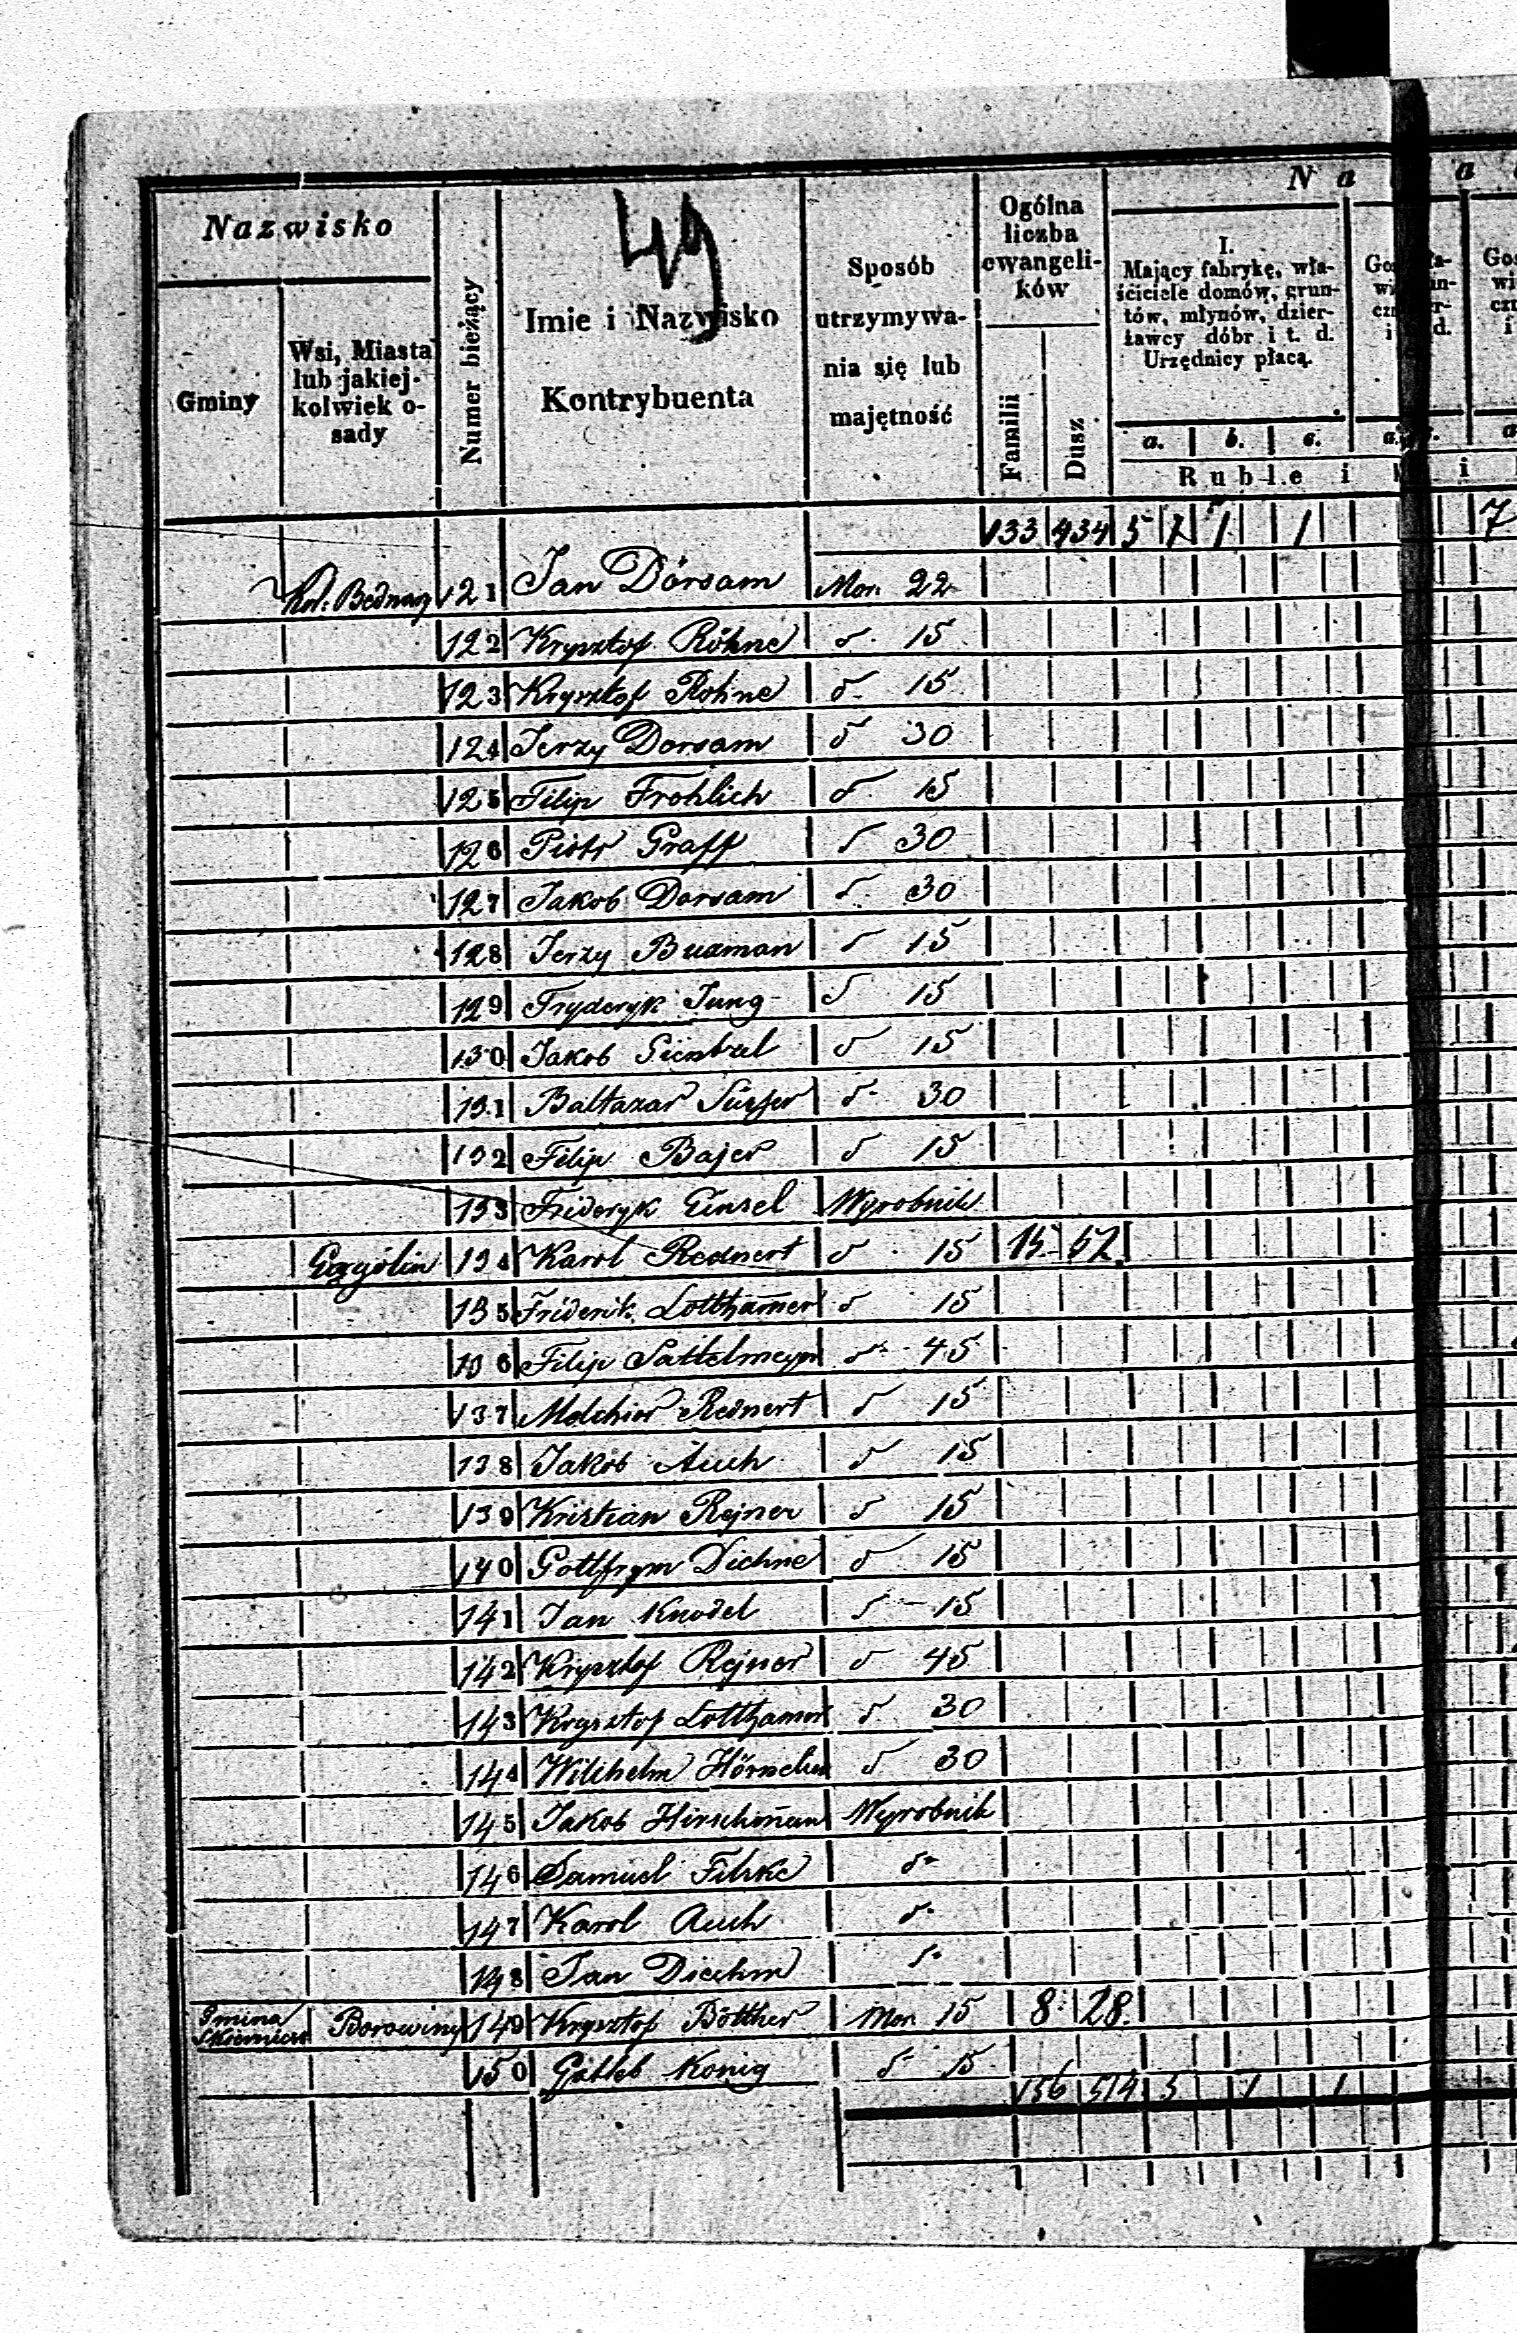 49
Nazwisko
Gminy
Wsi, Miasta lub jakiej- kolwiek o- sady
Numer bieżący
Imie i Nazwisko Kontrybuenta
Sposób utrzymywa- nia się lub majętność
Ogólna liczba ewangeli- ków
Familii
Dusz
N a
I. Mający fabrykę, wła- ściciele domów, grun- tów, młynów, dzier- ławcy dóbr i t. d. Urzędnicy płacą.
a. b. c.
Ruble i
133 434 5 7 1 1 7
Kol: Bednarz 121 Jan Dörsam Mor. 22
122 Krysztof Röhne d. 15
123 Krysztof Rohne d. 15
124 Jerzy Dorsam d 30
125 Filip Frohlich d. 15
126 Piotr Graff d 30
127 Jakob Dorsam d. 30
128 Jerzy Buxman d 15
129 Fryderyk Jung d 15
130 Jakob d 15
131 Baltazar d. 30
132 Filip Bajer d 15
133 Frideryk Einsel Wyrobnik
134 Karol Rednert d. 15 15 52
135 Friderik Lotthamer d 15
136 Filip Sattelmeyer d. 45
137 Melchior Rednert d 15
138 Jakob Auch d 15
139 Kristian Rejner d 15
140 Gottfrym Diehne d 15
141 Jan Knodel d 15
142 Krysztof Rejner d 45
143 Krysztof Lotthamer d 30
144 Wilhelm d 30
145 Jakob Hirschman Wyrobnik
146 Samuel d.
147 Karol Auch d.
148 Jan d.
Gmina Borowiny 149 Krysztof Bötther Mor. 15 8 28
150 Gottleb Konig d 15
156 514 5 1 1